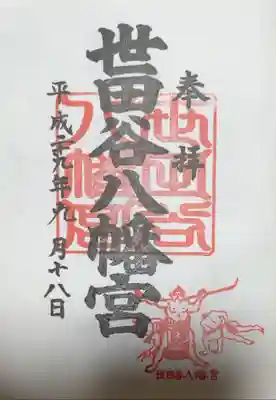 奉拝
世田谷八幡宮
平成二九年九月十八日
世田谷八幡宮
世田谷八幡宮